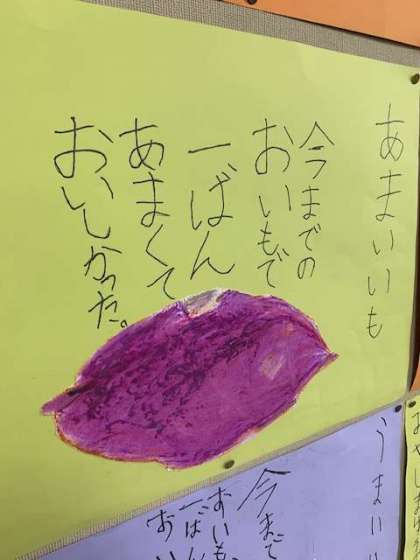 あまいいも
今までの
おいもで
一ばん
あまくて
おいしかった。
うまい
今まで
おいも
一ばん
お